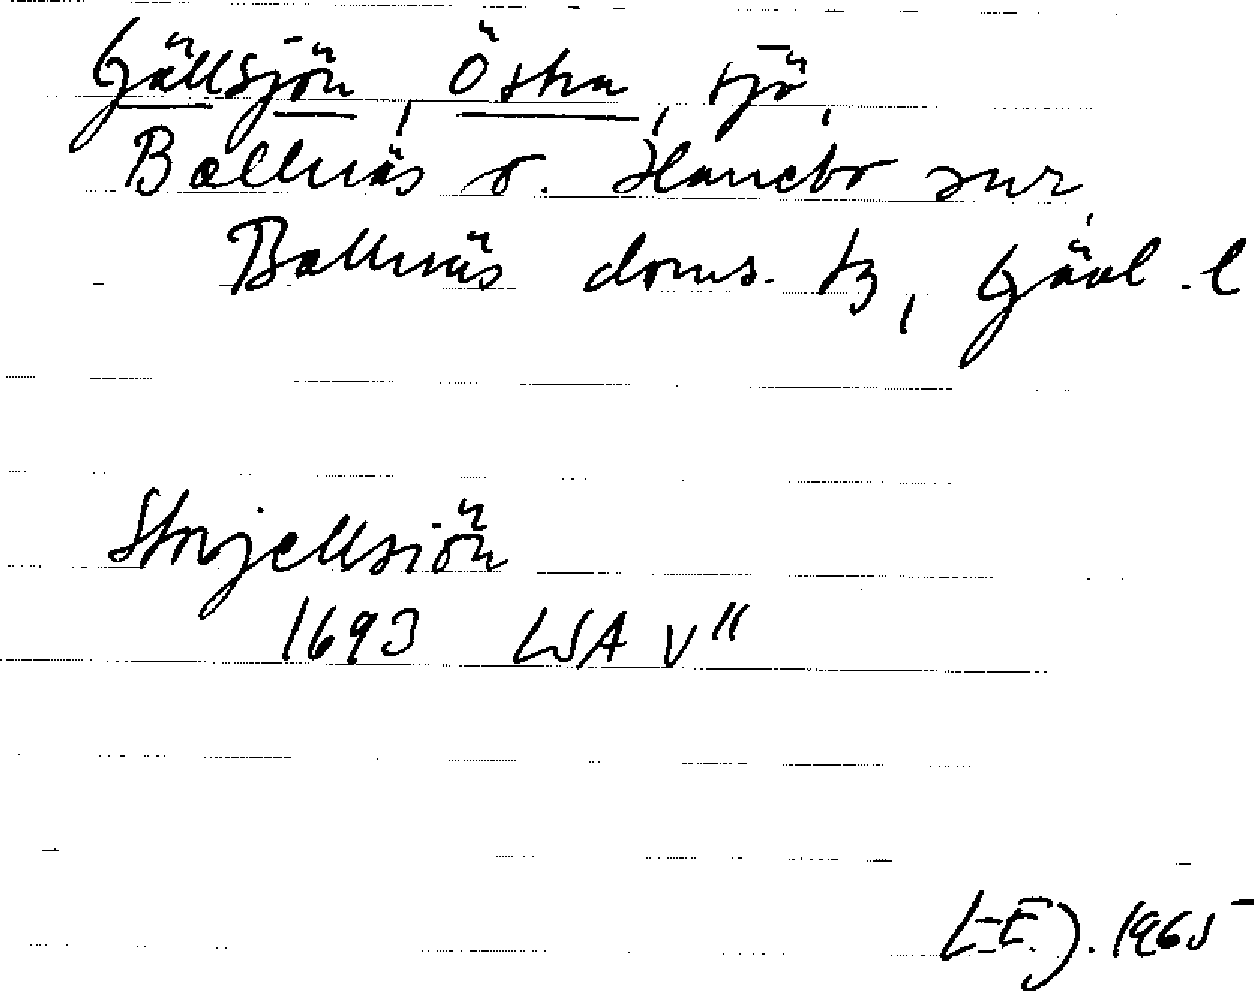 Gällsjön, Östra, sjö,
Bollnäs o. Hanebo snr,
Bollnäs doms. tz, Gävl. l
Storjellsiön
1693 LSA v"
LEJ. 1965